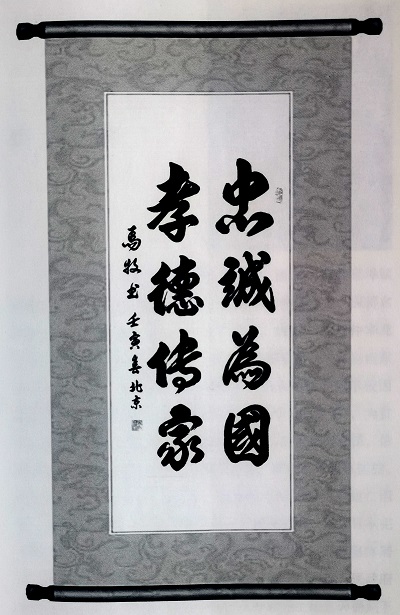 忠誠為國
孝德传家
馬牧书 壬寅春北京